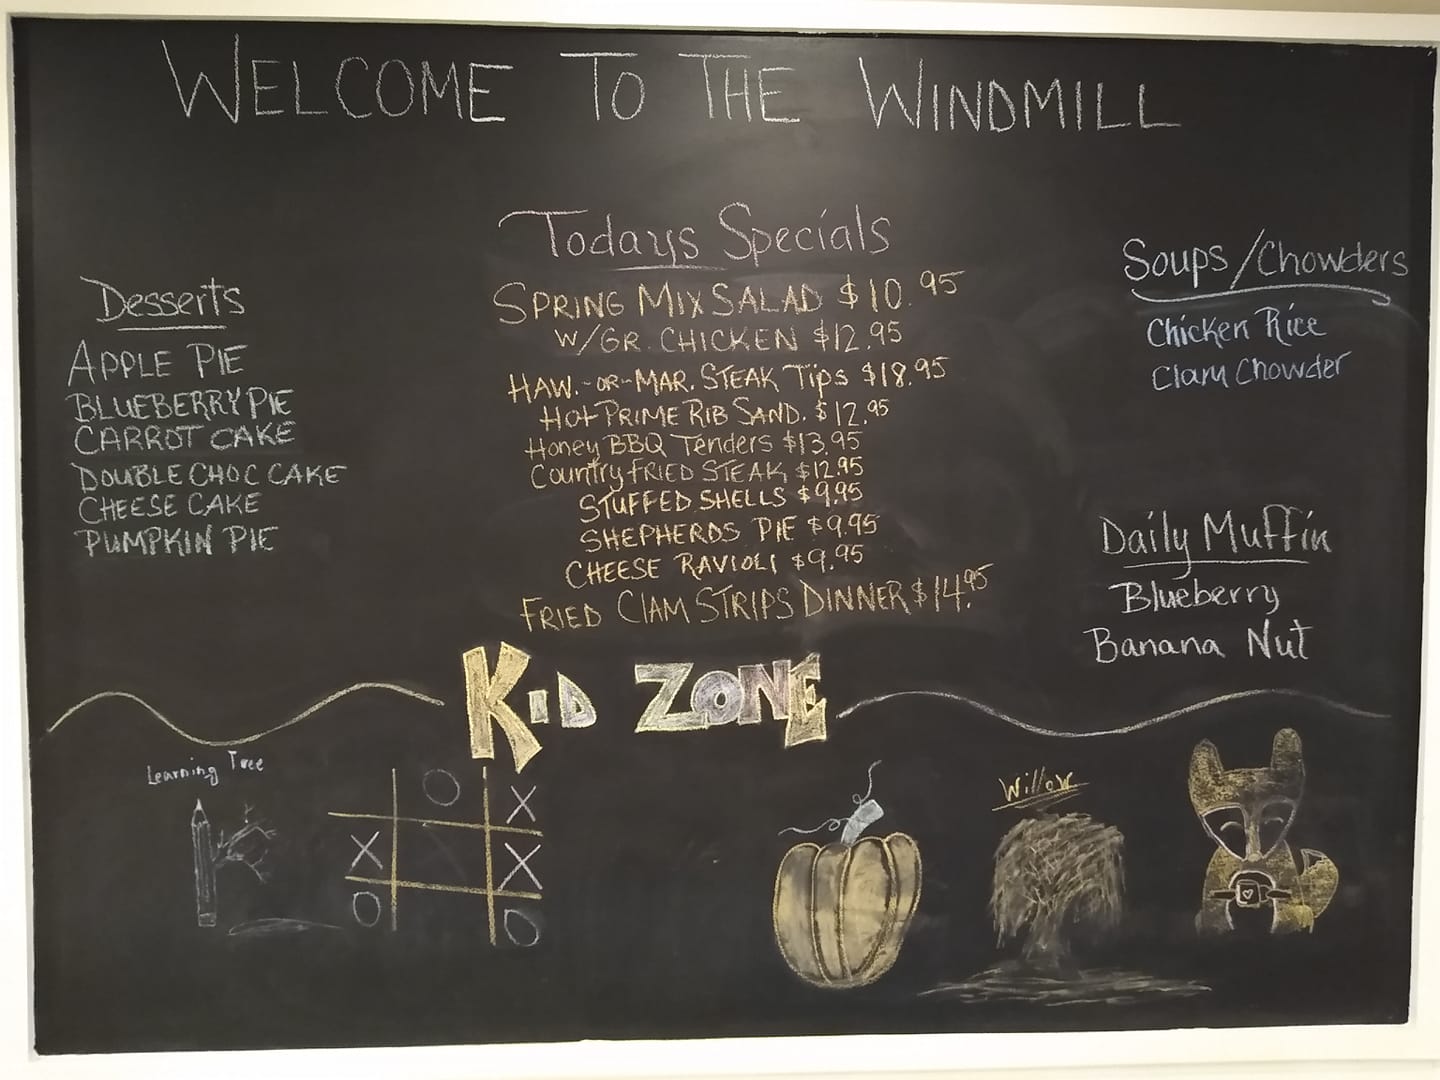 WELCOME TO THE WINDMILL
Todays Specials
SPRING MIX SALAD $10.95
W/GR. CHICKEN $12.95
HAW.-OR-MAR. STEAK TIPS $18.95
HOT PRIME RIB SAND. $12.95
Honey BBQ Tenders $13.95
Country FRIED STEAK $12.95
STUFFED SHELLS $9.95
SHEPHERDS PIE $9.95
CHEESE RAVIOLI $9.95
FRIED CLAM STRIPS DINNER $14.95
Desserts
APPLE PIE
BLUEBERRY PIE
CARROT CAKE
DOUBLE CHOC CAKE
CHEESE CAKE
PUMPKIN PIE
Soups/Chowders
Chicken Rice
Clam Chowder
Daily Muffin
Blueberry
Banana Nut
KID ZONE
Learning Tree
O X
X X
O O
Willow